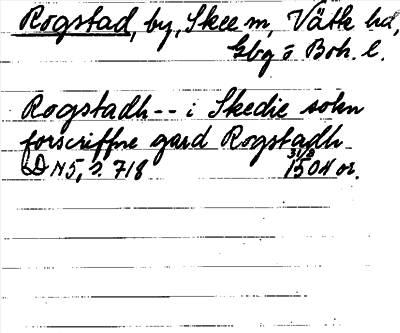 Rogstad, by, Skee sn, Vätte hd,
Gbg o Boh. l.
Rogstadh-- i Skedie sokn
forscriffne gard Rogstadh
DN 5, s. 718 31/8 1504 or.